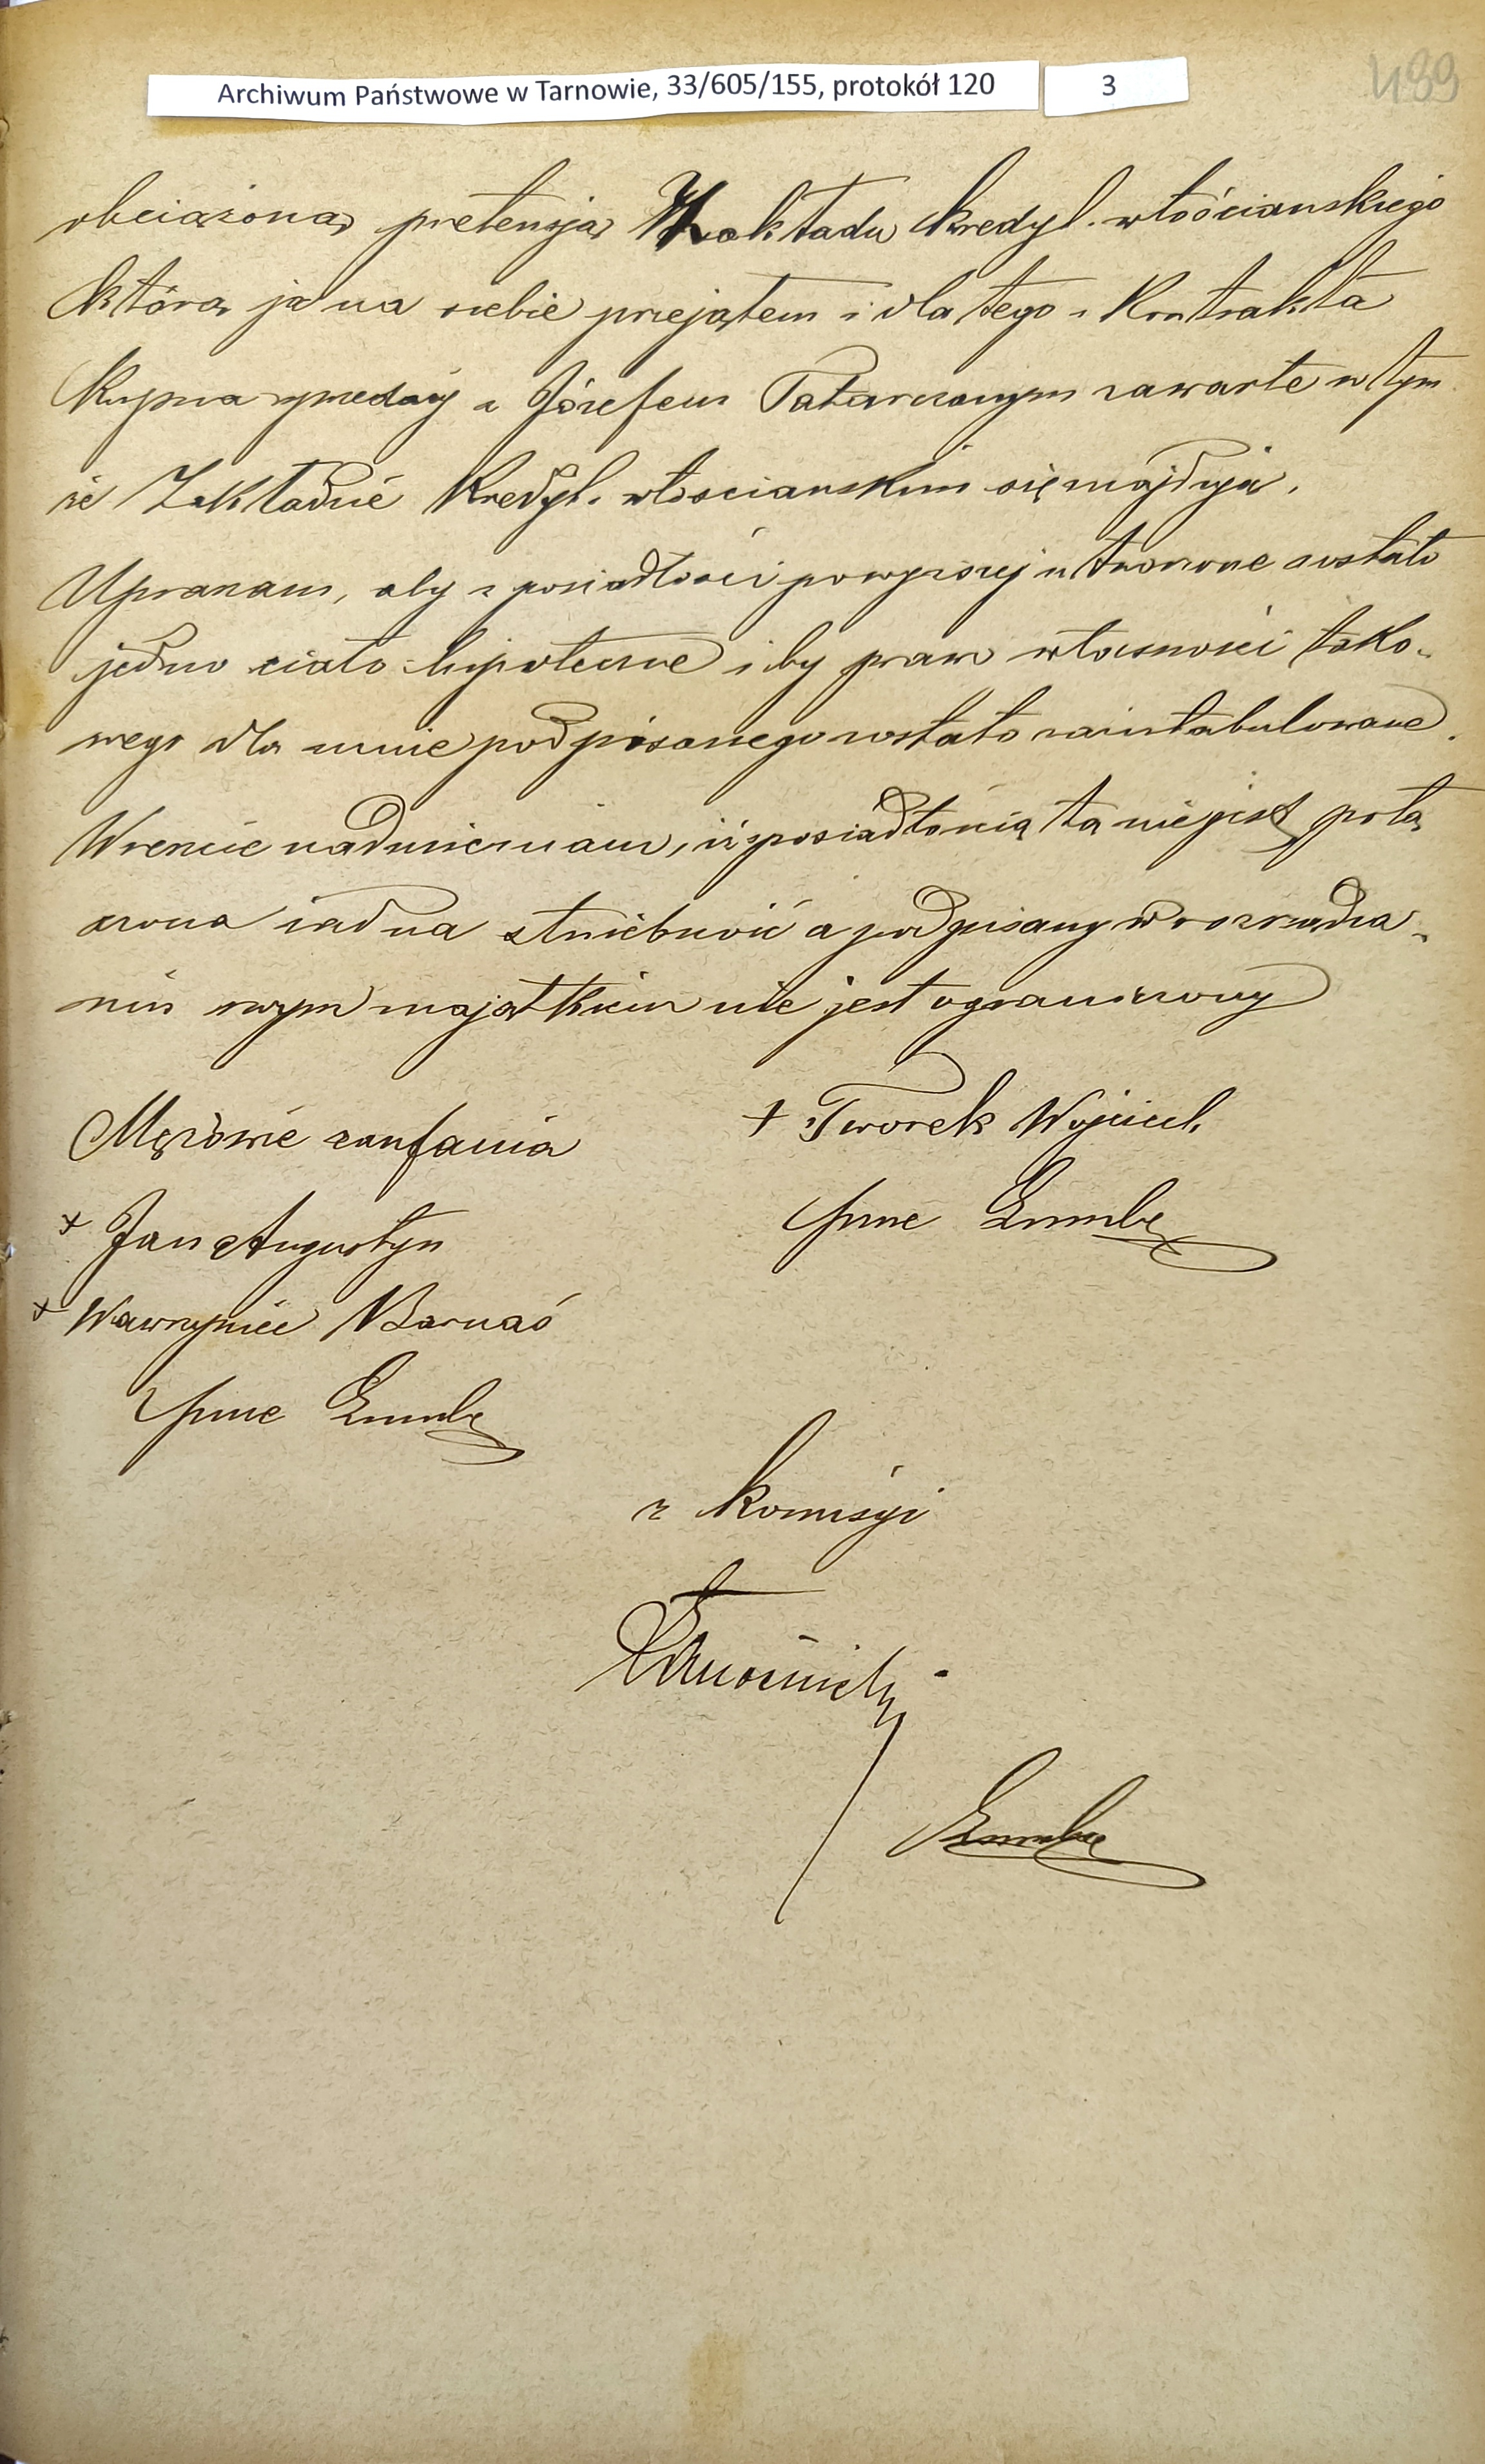 Archiwum Państwowe w Tarnowie, 33/605/155, protokół 120 3
489
obciążona, pretensją Zakładu kredyt. włościanskiego
którą ja na siebie przejąłem i dla tego i Kontrakta
Kupna sprzedaży z Józefem zawarte w tym
że Zakładzie Kredyt. włoscianskim się znajdują.
Upraszam, aby z posiadłości powyższej utworzone zostało
jedno ciało hipoteczne i by prawo własności tako-
wego dla mnie podpisanego zostało zaintabulowane.
Wreszcie nadmieniam, iż z posiadłością tą nie jest połą
czona żadna służebność a podpisany w rozrządza-
niu swym majątkiem nie jest ograniczony
Mężowie zaufania
+ Tworek Wojciech
+ Jan Augustyn
+ Wawrzyniec Barnaś
z Komisyi